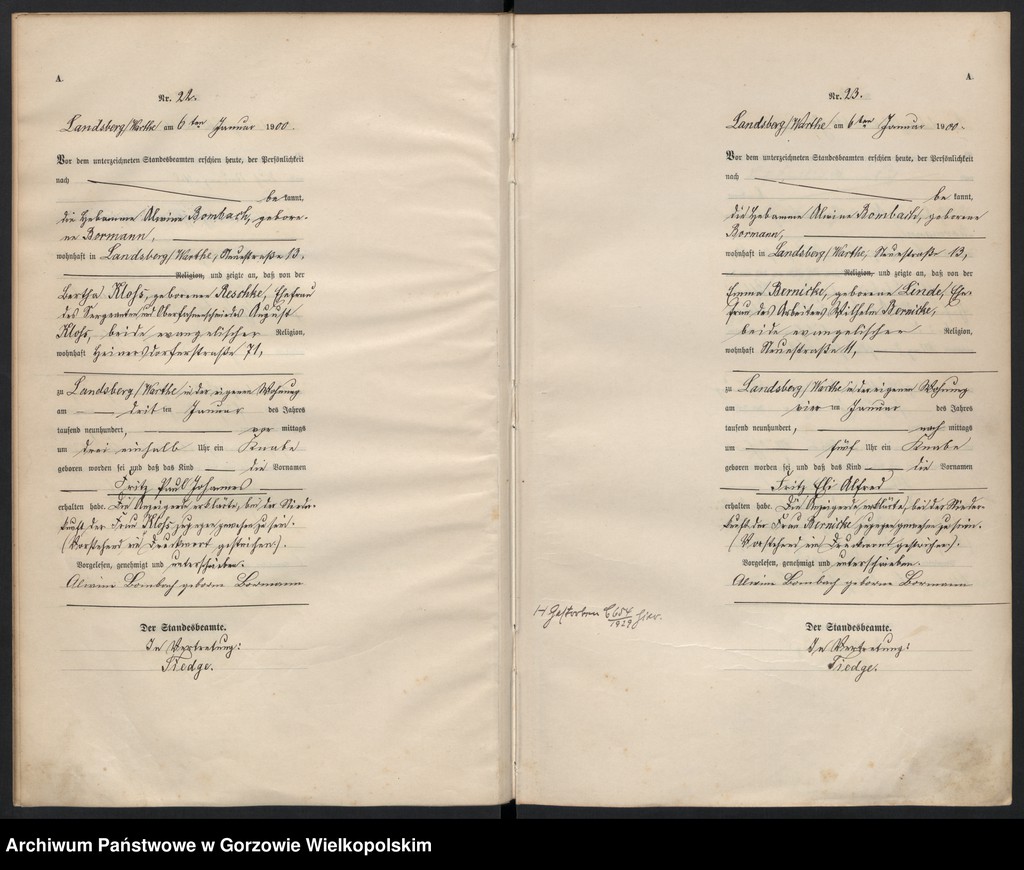 A.
Nr. 22.
Landsberg/Warthe am 6ten Januar 1900.
Vor dem unterzeichneten Standesbeamten erschien heute, der Persönlichkeit
nach
be kannt,
die Hebamme Alwine Bombach, gebore-
ne Bormann,
wohnhaft in Landsberg/Warthe, Neuestraße 13.
Religion, und zeigte an, daß von der
Bertha Klohs, geborenen Reschke, Ehefrau
des Sergeanten und August
Klohs, beide evangelischer Religion,
wohnhaft Heinersdorferstraße 71,
zu Landsberg/Warthe in der eigenen Wohnung
am drit ten Januar des Jahres
tausend neunhundert, vor mittags
um drei einhalb Uhr ein Knabe
geboren worden sei und daß das Kind die Vornamen
Fritz Paul Johannes
erhalten habe. Die Anzeigende erklärte, bei der Nieder-
kunft der Frau Klohs zugegen gewesen zu sein.
(Vorstehend ein Druckwort gestrichen.)
Vorgelesen, genehmigt und unterschrieben.
Alwine Bombach geborne Bormann
Der Standesbeamte.
In Vertretung:
Tiedge.
H Gestorben C 654/1929 hier.
A.
Nr. 23.
Landsberg/Warthe am 6ten Januar 1900.
Vor dem unterzeichneten Standesbeamten erschien heute, der Persönlichkeit
nach
be kannt,
die Hebamme Alwine Bombach, geborene
Bormann,
wohnhaft in Landsberg/Warthe, Neuestraße 13,
Religion, und zeigte an, daß von der
Emma Bernicke, geborene Linde, Ehe-
frau des Arbeiters Wilhelm Bernicke,
beide evangelischer Religion,
wohnhaft Neuestraße 11,
zu Landsberg/Warthe in der eigenen Wohnung
am vier ten Januar des Jahres
tausend neunhundert, nach mittags
um fünf Uhr ein Knabe
geboren worden sei und daß das Kind die Vornamen
Fritz Alfred
erhalten habe. Die Anzeigende erklärte, bei der Nieder-
kunft der Frau Bernicke zugegen gewesen zu sein.
(Vorstehend ein Druckwort gestrichen).
Vorgelesen, genehmigt und unterschrieben.
Alwine Bombach geborne Bormann
Der Standesbeamte.
In Vertretung:
Tiedge.
Archiwum Państwowe w Gorzowie Wielkopolskim